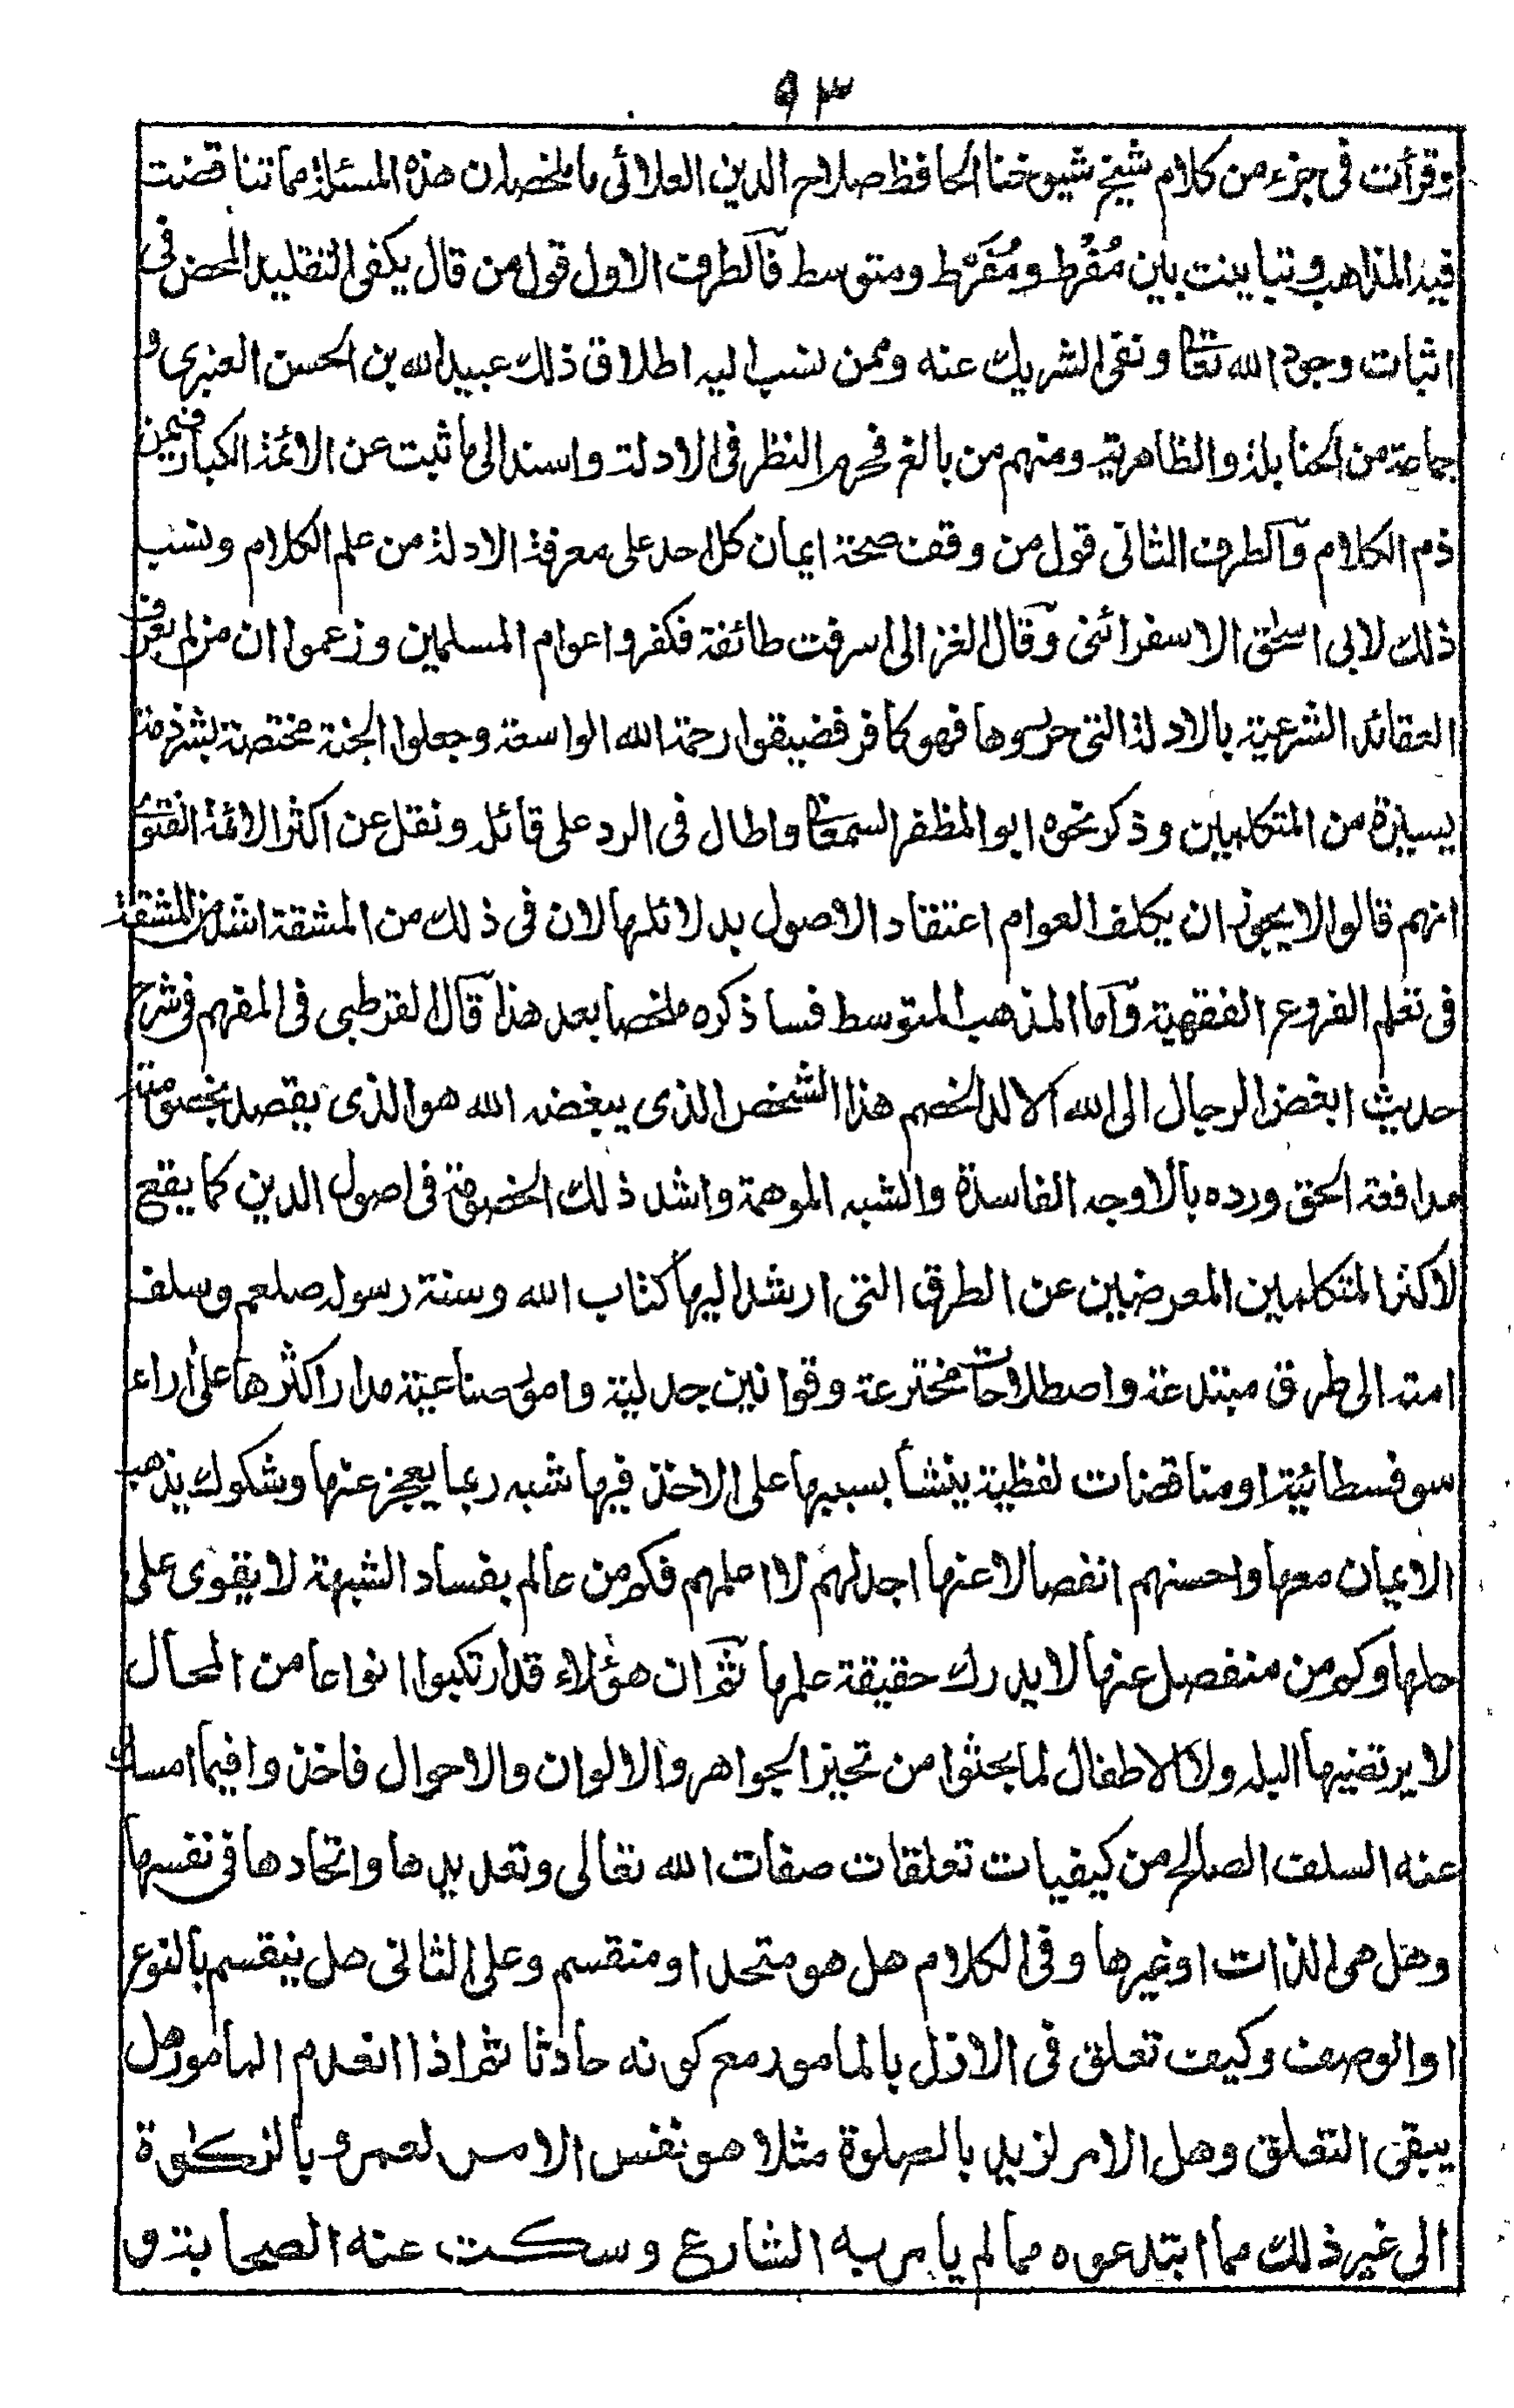 ٩٣
وقرأت فى جزء من كلام شيخ شيوخنا الحافظ صلاح الدين العلائى ما ملخصه ان هذه المسئلة مما تناقضت
فيه المذاهب وتباينت بين مُفْرِط ومُفَرِّط ومتوسط فآلطرف الاول قول من قال يكفى التقليد المحض فى
اثبات وجود الله تعالى ونفى الشريك عنه وممن نسب اليه اطلاق ذلك عبيد الله بن الحسن العنبرى و
جماعة من الحنابلة والظاهرية ومنهم من بالغ فحرم النظر فى الادلة واستند الى ما ثبت عن الائمة الكبار فيمن
ذم الكلام وآلطرف الثانى قول من وقف صحة ايمان كل احد على معرفة الادلة من علم الكلام ونسب
ذلك لابى اسحٰق الاسفرائنى وقال الغزالى اسرفت طائفة فكفروا عوام المسلمين وزعموا ان من لم يعرف
العقائد الشرعية بالادلة التى حرسوها فهو كافر فضيقوا رحمة الله الواسعة وجعلوا الجنة مختصة بشرذمة
يسيرة من المتكلمين وذكر نحوه ابو المظفر السمعانى واطال فى الرد على قائله ونقل عن اكثر الائمة الفتوى
انهم قالوا لا يجوز ان يكلف العوام اعتقاد الاصول بدلائلها لان فى ذلك من المشقة اشد من المشقة
فى تعلم الفروع الفقهية وآما المذهب المتوسط فساذكره ملخصا بعد هذا قال القرطبى فى المفهم فى شرح
حديث ابغض الرجال الى الله آلالد الخصم هذا الشخص الذى يبغضه الله هو الذى يقصد بخصومته
مدافعة الحق ورده بالاوجه الفاسدة والشبه الموهمة واشد ذلك الخصومة فى اصول الدين كما يقع
لاكثر المتكلمين المعرضين عن الطرق التى ارشد اليها كتاب الله وسنة رسوله صلعم وسلف
امته الى طرق مبتدعة واصطلاحات مخترعة وقوانين جدلية وامور صناعية مدار اكثرها على اراء
سوفسطائية او مناقضات لفظية ينشأ بسببها على الاخذ فيها شبه ربما يعجز عنها وشكوك يذهب
الايمان معها واحسنهم انفصالا عنها اجدلهم لا اعلمهم فكم من عالم بفساد الشبهة لا يقوى على
حلها وكم من منفصل عنها لا يدرك حقيقة علمها ثم ان هؤلاء قد ارتكبوا انواعا من المحال
لا يرتضيها البله ولا الاطفال لما بحثوا من تحيز الجواهر والالوان والاحوال فاخذوا فيما امسك
عنه السلف الصالح من كيفيات تعلقات صفات الله تعالى وتعديدها واتحادها فى نفسها
وهل هى الذات او غيرها وفى الكلام هل هو متحد او منقسم وعلى الثانى هل ينقسم بالنوع
او الوصف وكيف تعلق فى الازل بالمامور مع كونه حادثا ثم اذا انعدم المامور هل
يبقى التعلق وهل الامر لزيد بالصلوة مثلا هو نفس الامر لعمرو بالزكوة
الى غير ذلك مما ابتدعوه مما لم يامر به الشارع وسكت عنه الصحابة و